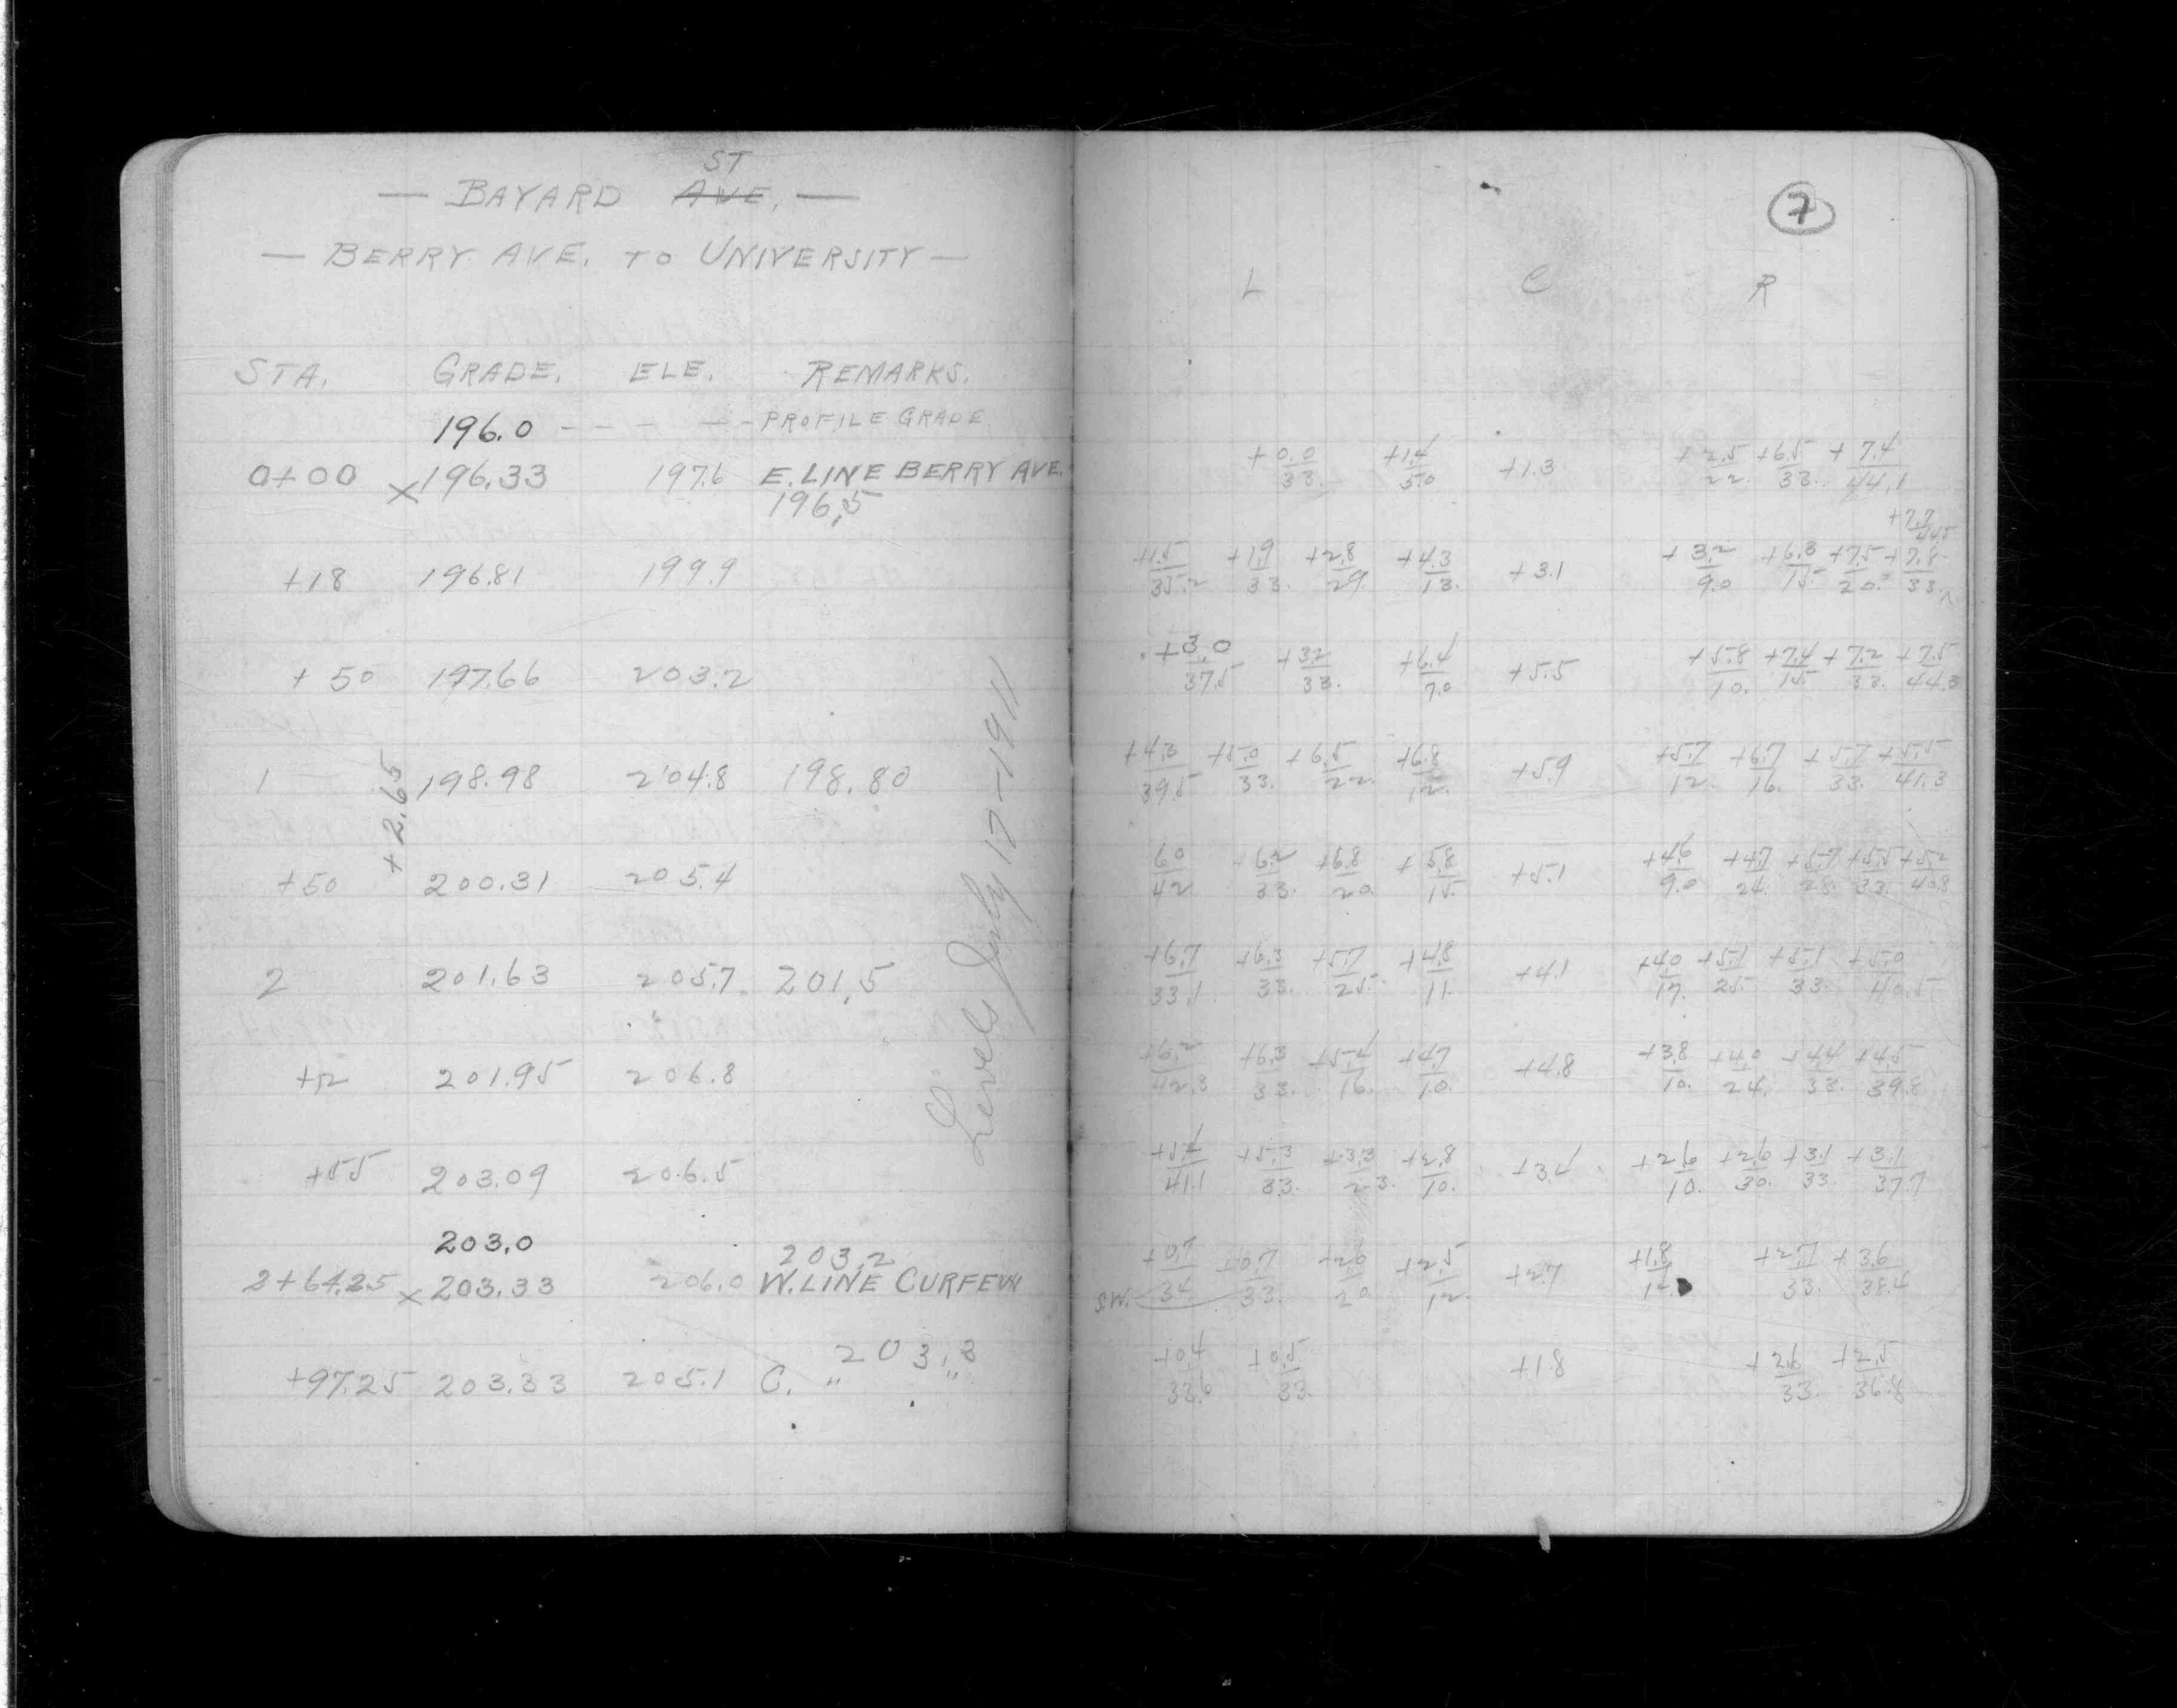 ST
— BAYARD AVE. —
— BERRY AVE. TO UNIVERSITY —
STA. GRADE. ELE. REMARKS.
196.0 - - - - - - PROFILE GRADE
0+00 x 196.33 197.6 E. LINE BERRY AVE.
196.5
+18 196.81 199.9
+50 197.66 203.2
1 198.98 204.8 198.80
+2.65
+50 200.31 205.4
2 201.63 205.7 201.5
+12 201.95 206.8
+55 203.09 206.5
203.0 203.2
2+64.25 x 203.33 206.0 W. LINE CURFEW
203.3
+97.25 203.33 205.1 C. " "
Levels July 17-1911
7
L C R
+0.0/33. +1.4/50 +1.3 +2.5/22. +6.5/33. +7.4/44.1
+7.7/44.5
+1.5/35.2 +1.9/33. +2.8/29. +4.3/13. +3.1 +3.2/9.0 +6.3/15 +7.5/20. +7.8/33.
+3.0/37.5 +3.2/33. +6.4/7.0 +5.5 +5.8/10. +7.4/15. +7.2/33. +7.5/44.3
+4.3/39.5 +5.0/33. +6.5/22. +6.8/12. +5.9 +5.7/12. +6.7/16. +5.7/33. +5.5/41.3
6.0/42 +6.2/33. +6.8/20. +5.8/15. +5.1 +4.6/9.0 +4.7/24. +5.7/28. +5.5/33. +5.2/40.8
+6.7/33.1 +6.3/33. +5.7/25. +4.8/11. +4.1 +4.0/17. +5.1/25. +5.1/33. +5.0/40.5
+6.2/42.3 +6.3/33. +5.4/16. +4.7/10. +4.8 +3.8/10. +4.0/24. +4.4/33. +4.5/39.8
+5.4/41.1 +5.3/33. +3.3/23. +2.8/10. +3.4 +2.6/10. +2.6/30. +3.1/33. +3.1/37.7
S.W. +0.7/34 +0.7/33. +2.0/20 +2.5/12. +2.7 +1.8/12. +2.7/33. +3.6/38.4
+0.4/33.6 +0.5/33. +1.8 +2.6/33. +2.5/36.8